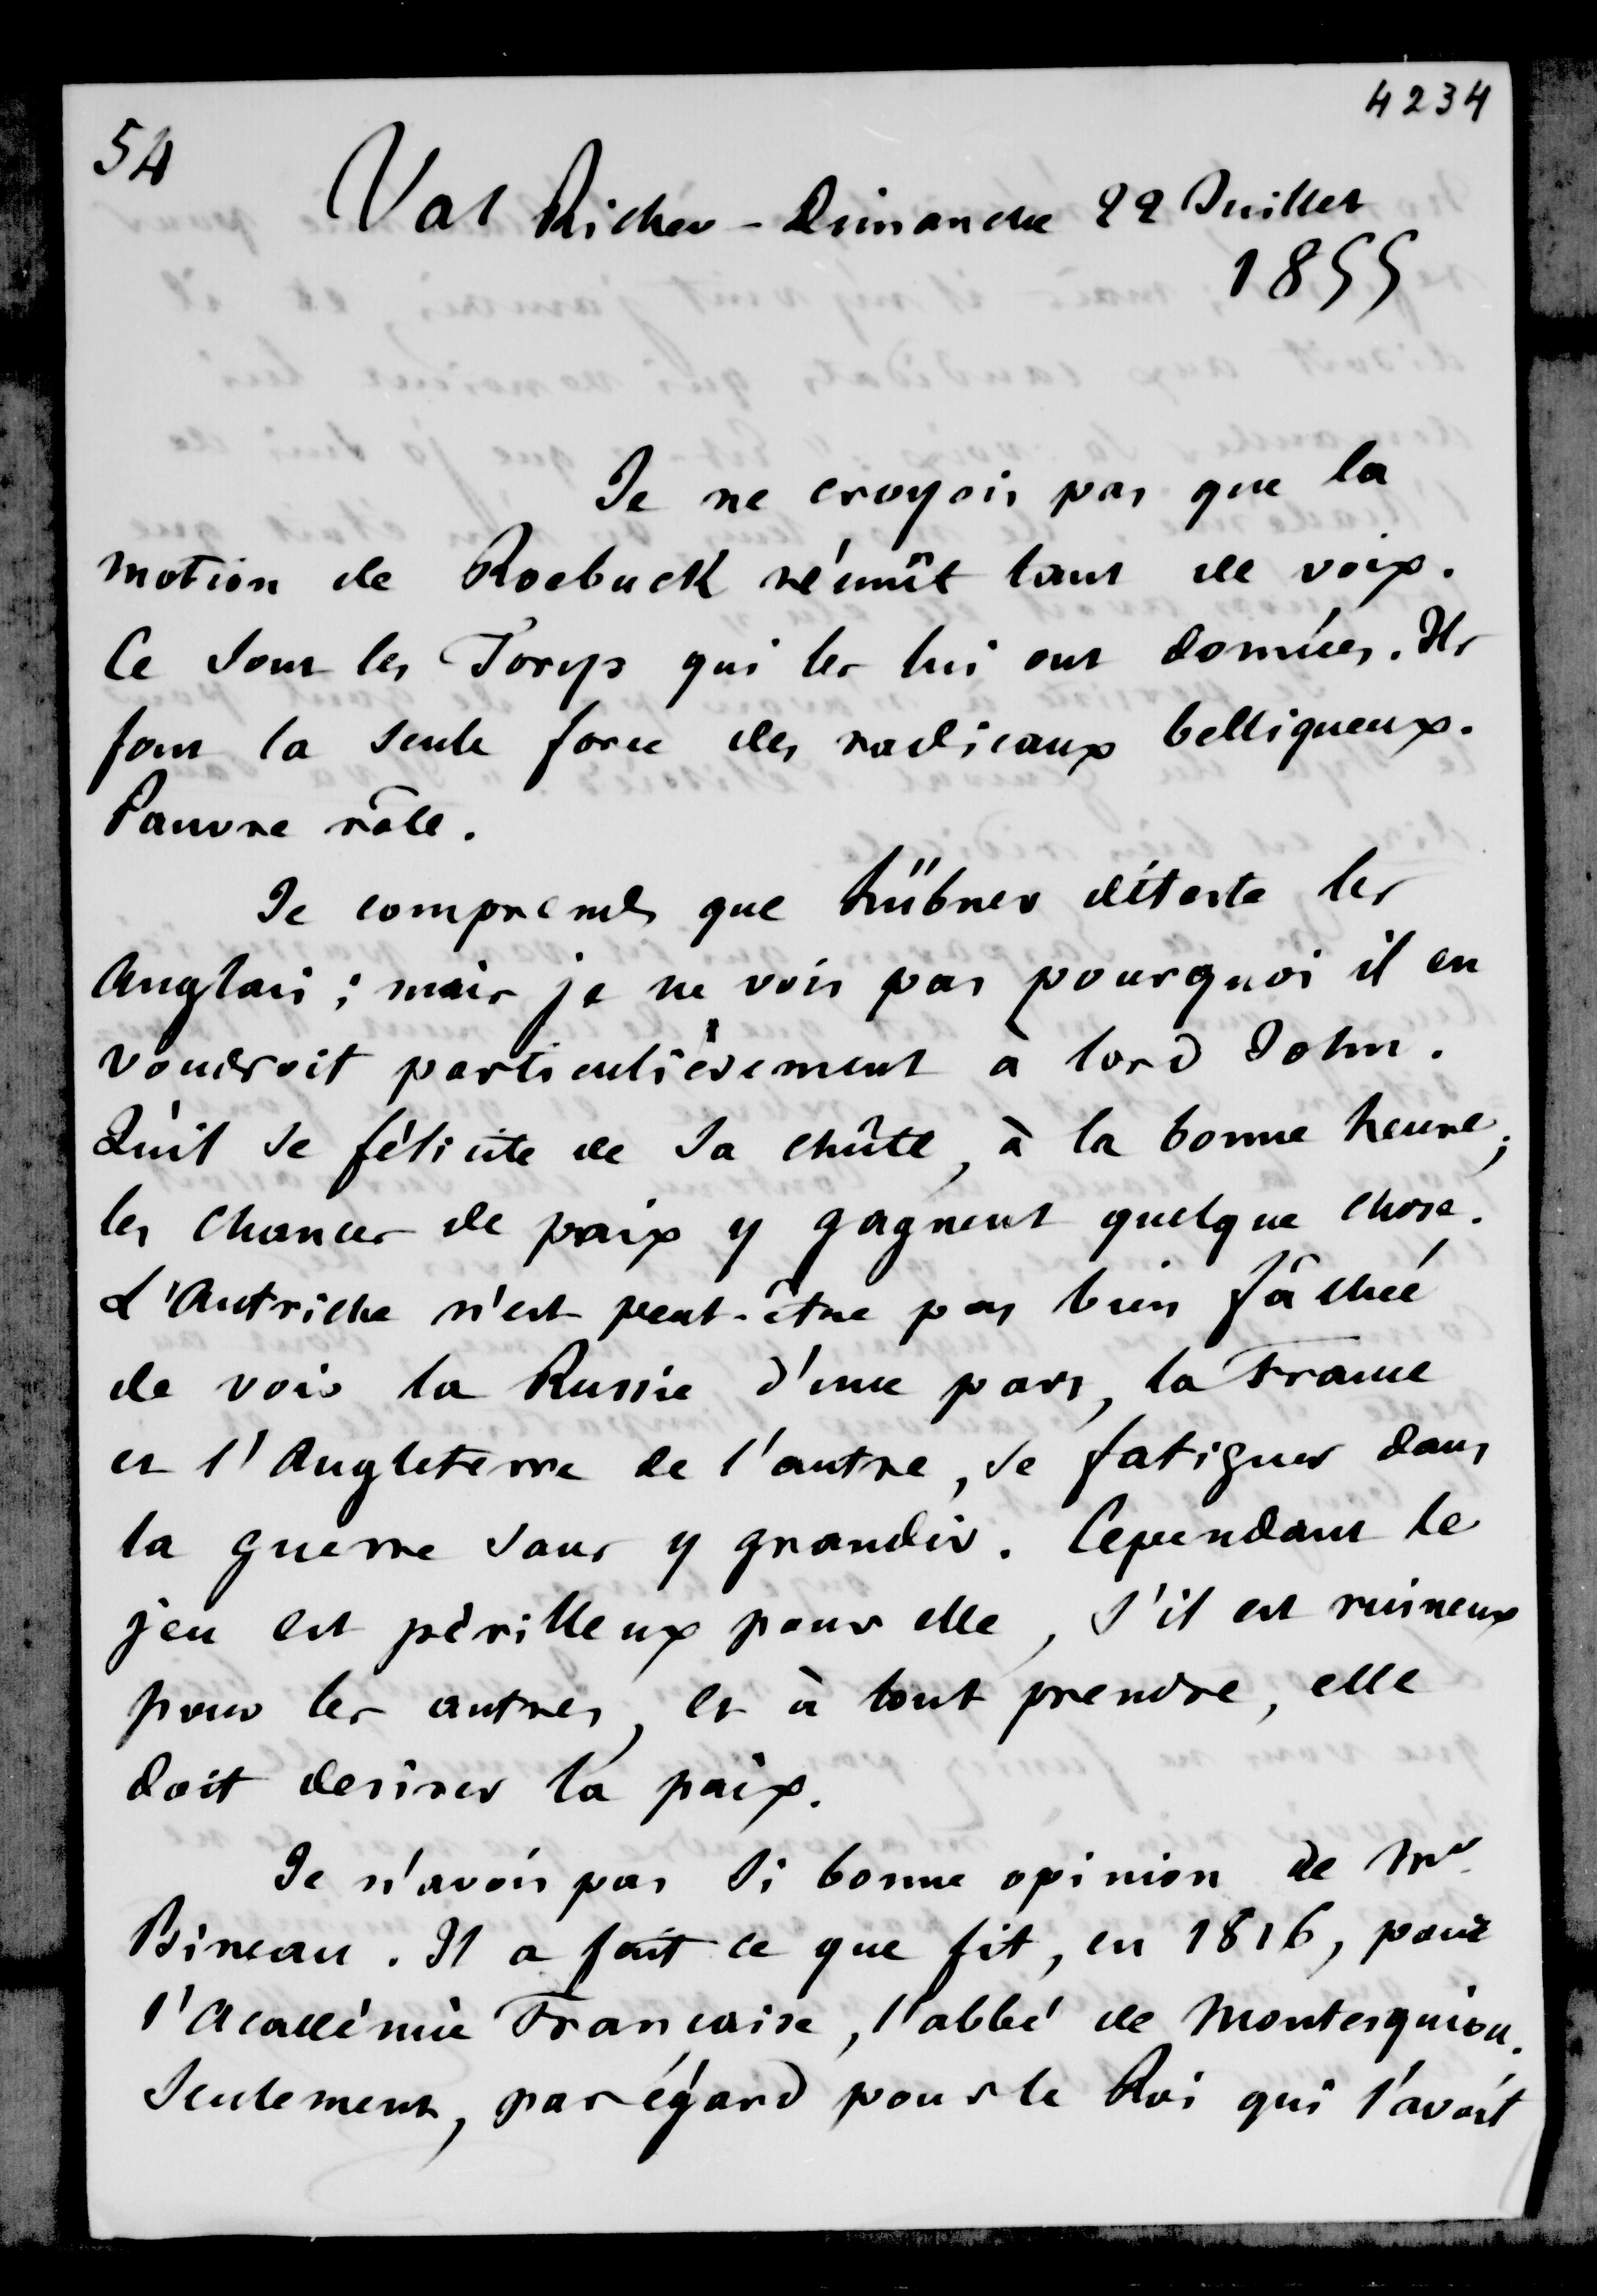 4234
54
Val Richer - Dimanche 22 Juillet
1855
Je ne croyois pas que la
motion de Roebuck réunît tant de voix.
Ce sont les Torys qui les lui ont données. Ils
font la seule force des radicaux belliqueux.
Pauvre rôle.
Je comprends que hübner déteste les
Anglais ; mais je ne vois pas pourquoi il en
voudroit particulièrement à lord John.
Qu'il se félicite de sa chûte, à la bonne heure ;
les chances de paix y gagnent quelque chose.
L'Autriche n'est peut-être pas bien fâchée
de voir la Russie d'une part, la France
et l'Angleterre de l'autre, se fatiguer dans
la guerre sans y grandir. Cependant le
jeu est périlleux pour elle, s'il est ruineux
pour les autres, et à tout prendre, elle
doit desirer la paix.
Je n'avois pas si bonne opinion de Mr
Bineau. Il a fait ce que fit, en 1816, pour
l'Académie Française, l'abbé de Montesquiou.
Seulement, par égard pour le Roi qui l'avoit